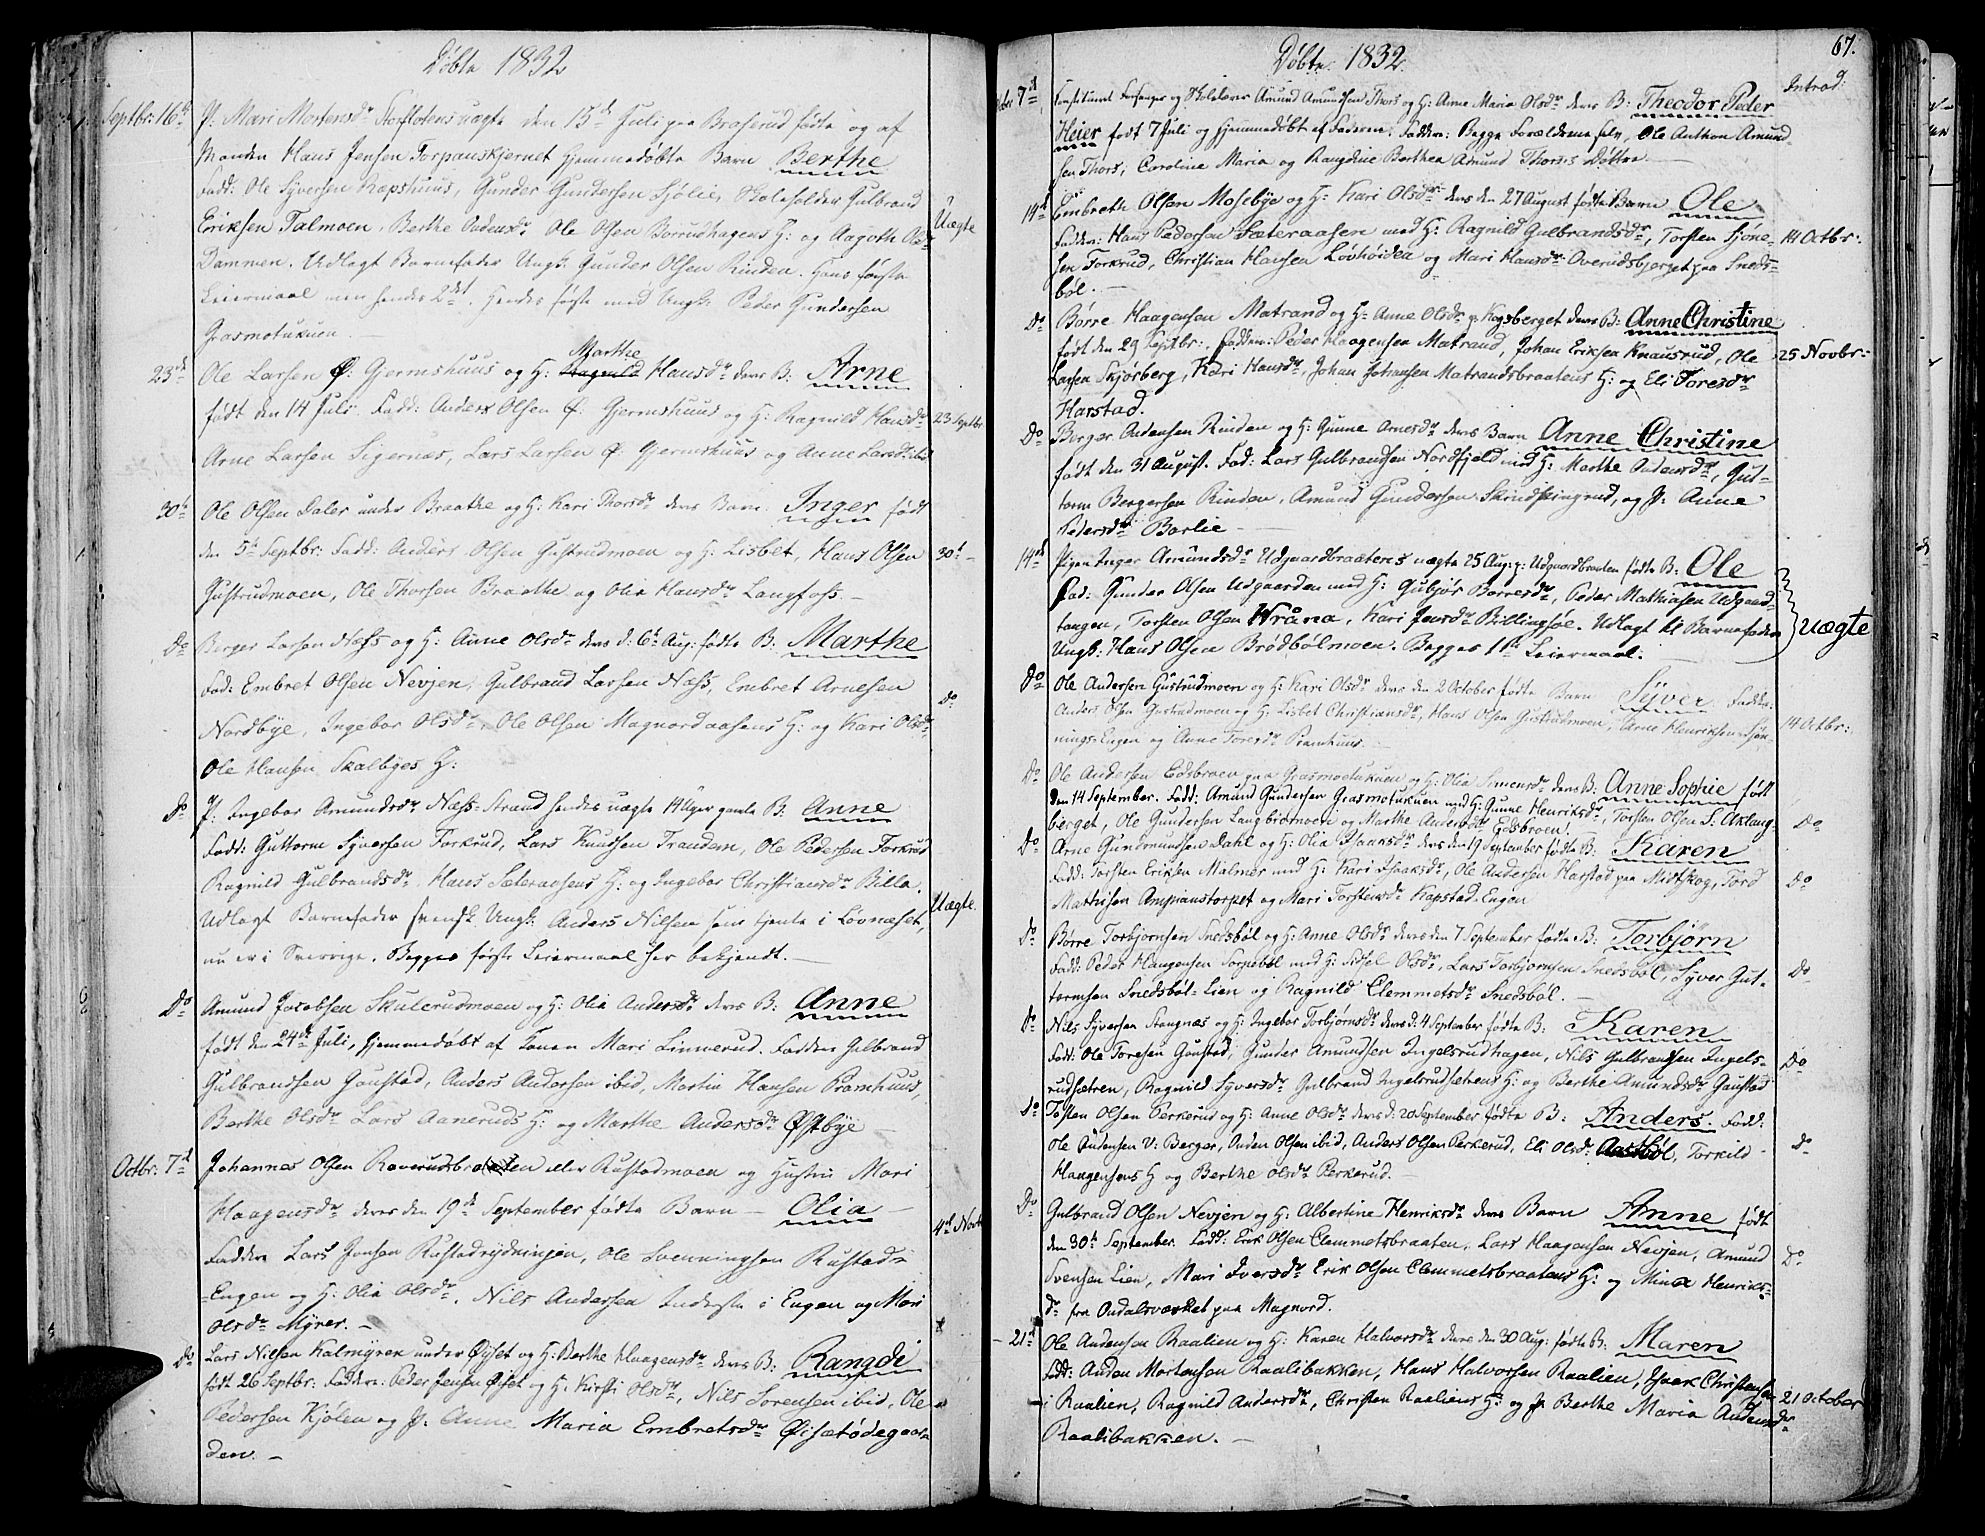 Döbte 1832
Septbr: 16de P: Mari Mortensdr Storflotens uægte den 15de Juli paa Braserud födte og af
Manden Hans Jensen Torpanskjernet hjemmedöbte Barn Berthe
Fadd: Ole Syversen Rapshuus, Gunder Gundersen Sjölie, Skoleholder Gulbrand
Eriksen Talmoen, Berthe Audensdr Ole Olsen Borrudhagens H: og Aagoth Olsdr Uægte
Dammen. Udlagt Barnefader Ungk: Gunder Olsen Rinden. Hans förste
Leiermaal men hendes 2det. Hendes förste med Ungk: Peder Gundersen
Grasmotukuen.
Marthe
23de Ole Larsen Ø: Gjermshuus og H: Ragnild Hansdr deres B: Arne
födt den 14 Juli. Fadd: Anders Olsen Ø: Gjermshuus og H: Ragnild Hansdr 23 Septbr
Arne Larsen Sigernæs, Lars Larsen Ø: Gjermshuus og Anne Larsdr ibid
30te Ole Olsen Daler under Braathe og H: Kari Thorsdr deres Barn Inger födt
den 5te Septbr: Fadd: Anders Olsen Gustrudmoen og H: Lisbet, Hans Olsen 30te
Gustrudmoen, Ole Thorsen Braathe og Olia Hansdr Langfoss.
Do Berger Larsen Næss og H: Anne Olsdr deres d: 6te Aug: födte B: Marthe
Fad: Embret Olsen Nevjen, Gulbrand Larsen Næss, Embret Arnesen Do
Nordbye, Ingebor Olsdr, Ole Olsen Magnordaasens H: og Kari Olsdr
Ole Hansen Skalbyes H:
Do P: Ingebor Amundsdr Næss-Strand hendes uægte 14 Uger gamle B: Anne
Fadd: Guttorm Syversen Torkrud, Lars Knudsen Trandem, Ole Pedersen Torkrud
Ragnild Gulbrandsdr Hans Sæteraasens H: og Ingebor Christiansdr Billa.
Udlagt Barnefader svensk Ungk: Anders Nilsen som tjente i Lövnæset, Uægte.
nu er i Sverrige. Begges förste Leiermaal her bekjendt.
Do Amund Jacobsen Skulerudmoen og H: Olia Andersdr deres B: Anne
födt den 24de Juli, hjemmedöbt af Konen Mari Linnerud. Faddere Gulbrand
Gulbrandsen Gaustad, Anders Andersen ibid, Martin Hansen Pramhuus,
Berthe Olsdr Lars Aaneruds H: og Marthe Andersdr Østbye
Octbr: 7de Johannes Olsen Raverudsbraaten eller Rustadmoen og Hustru Mari
Haagensdr deres den 19de September födte Barn – Olia – 4de Novb
Faddere Lars Jonsen Rustadrydningen, Ole Svenningsen Rustad-
Engen og H: Olia Olsdr, Nils Andersen Inderste i Engen og Mari
Olsdr Myrer.
Do Lars Nilsen Kalmyren under Øiset og H: Berthe Haagensdr deres B: Rangdi
födt 26 Septbr: Faddere: Peder Jensen Øiset og H: Kirsti Olsdr, Nils Sörensen ibid, Ole
Pedersen Kjölen og P: Anne Maria Embretsdr Øisætødegaar-
den.
67.
Döbte 1832. Introd:
7de Constitueret Forsanger og Skolelærer Amund Amundsen Thors og H: Anne Maria Olsdr deres B: Theodor Peder
Heier födt 7 Juli og hjemmedöbt af Faderen. Faddere: Begge Forældrene selv, Ole Anthon Amund-
sen Thors, Caroline Maria og Rangdine Berthea Amund Thorses Döttre
14de Embreth Olsen Mosebye og H: Kari Olsdr deres den 27 August födte Barn Ole
Faddere: Hans Pedersen Sæteraasen med H: Ragnild Gulbrandsdr, Torsten Sjöne- 14 Octbr:
sen Torkrud, Christian Hansen Lövhöiden og Mari Hansdr Overudsbjerget paa Sneds-
böl.
Do Börre Haagensen Matrand og H: Anne Olsdr p: Kogsberget deres B: Anne Christine
födt den 29 Septbr:, Faddere: Peder Haagensen Matrand, Johan Eriksen Knausrud, Ole 25 Novbr:
Larsen Skjörberg, Kari Hansdr, Johan Johansen Matrandsbraatens H: og Eli Toresdr
Harstad.
Do Berger Audensen Rinden og H: Gunne Arnesdr deres Barn Anne Christine
födt den 31 August. Fad: Lars Gulbrandsen Nordfjeld med H: Marthe Audensdr, Gut-
torm Bergersen Rinden, Amund Gundersen Skindpungrud, og P: Anne
Pedersdr Barlie
14de Pigen Inger Amundsdr Udgaardbraatens uægte 25 Aug: p: Udgaardbraaten födte B: Ole
Fad: Gunder Olsen Udgaarden med H: Gubjör Börresdr, Peder Mathiasen Udgaard-
tangen, Torsten Olsen Wråna, Kari Jensdr Billingsöe. Udlagt til Barnefader Uægte
Ungk: Hans Olsen Brödbölmoen. Begges 1ste Leiermaal.
Do Ole Andersen Gustrudmoen og H: Kari Olsdr deres den 2 October födte Barn Syver Fadder:
Anders Olsen Gustrudmoen og H: Lisbet Christiansdr, Hans Olsen Gustrudmoen, Arne Henriksen Sjön- 14 Octbr:
nings-Engen og Anne Toresdr Pramhuus.
Do Ole Andersen Eidsbroen paa Grasmotukuen og H: Olia Simensdr deres B: Anne Sophie födt
den 14 September. Fadd: Amund Gundersen Grasmotukuen med H: Gunne Henriksdr, Torsten Olsen S: Aklang-
berget, Ole Gundersen Langbræmoen og Marthe Andersdr Eidsbroen. Do
Do Arne Gundmundsen Dahl og H: Olia Isaaksdr deres den 19 September födte B: Karen
Fadd: Torsten Eriksen Malmer med H: Kari Isaaksdr, Ole Andersen Harstad paa Midtskog, Tord Do
Mathisen Ampianstorpet og Mari Torstensdr Kapstad-Engen
Do Börre Torbjörnsen Snedsböl og H: Anne Olsdr deres den 7 September födte B: Torbjörn
Fadd: Peder Haagensen Torgeböl med H: Sidsel Olsdr, Lars Torbjörnsen Snedsböl, Syver Gut- Do
tormsen Snedsböl-Lien og Ragnild Clemmetsdr Snedsböl.
Do Nils Syversen Stangnæs og H: Ingebor Torbjörnsdr deres d: 4 September födte B: Karen
Fadd: Ole Toresen Gaustad, Gunder Amundsen Ingelsrudhagen, Nils Gulbrandsen Ingels- Do
rudsætren, Ragnild Syversdr Gulbrand Ingelsrudsætrens H: og Berthe Amundsdr Gaustad
Do Tosten Olsen Perkerud og H: Anne Olsdr deres d: 20 September födte B: Anders. Fadd:
Ole Audensen V: Berger, Auden Olsen ibid, Anders Olsen Perkerud, Eli Olsdr Aastböl, Torkild Do
Haagensens H og Berthe Olsdr Perkerud.
Do Gulbrand Olsen Nevjen og H: Albertine Henriksdr deres Barn Anne födt
den 30te September. Fadd: Erik Olsen Clemmetsbraaten, Lars Haagensen Nevjen, Amund Do
Svensen Lien, Mari Iversdr Erik Olsen Clemmetsbraatens H: og Mina Henriks-
dr fra Oudalsværket paa Magnord.
21de Ole Audensen Raalien og H: Karen Halvorsdr deres den 30 Aug: födte B: Maren
Fadd: Auden Mortensen Raalibakken, Hans Halvorsen Raalien, Isaak Christensen
i Raalien, Ragnild Andersdr, Christen Raaliens H: og P: Berthe Maria Audensdr 21 October
Raalibakken.